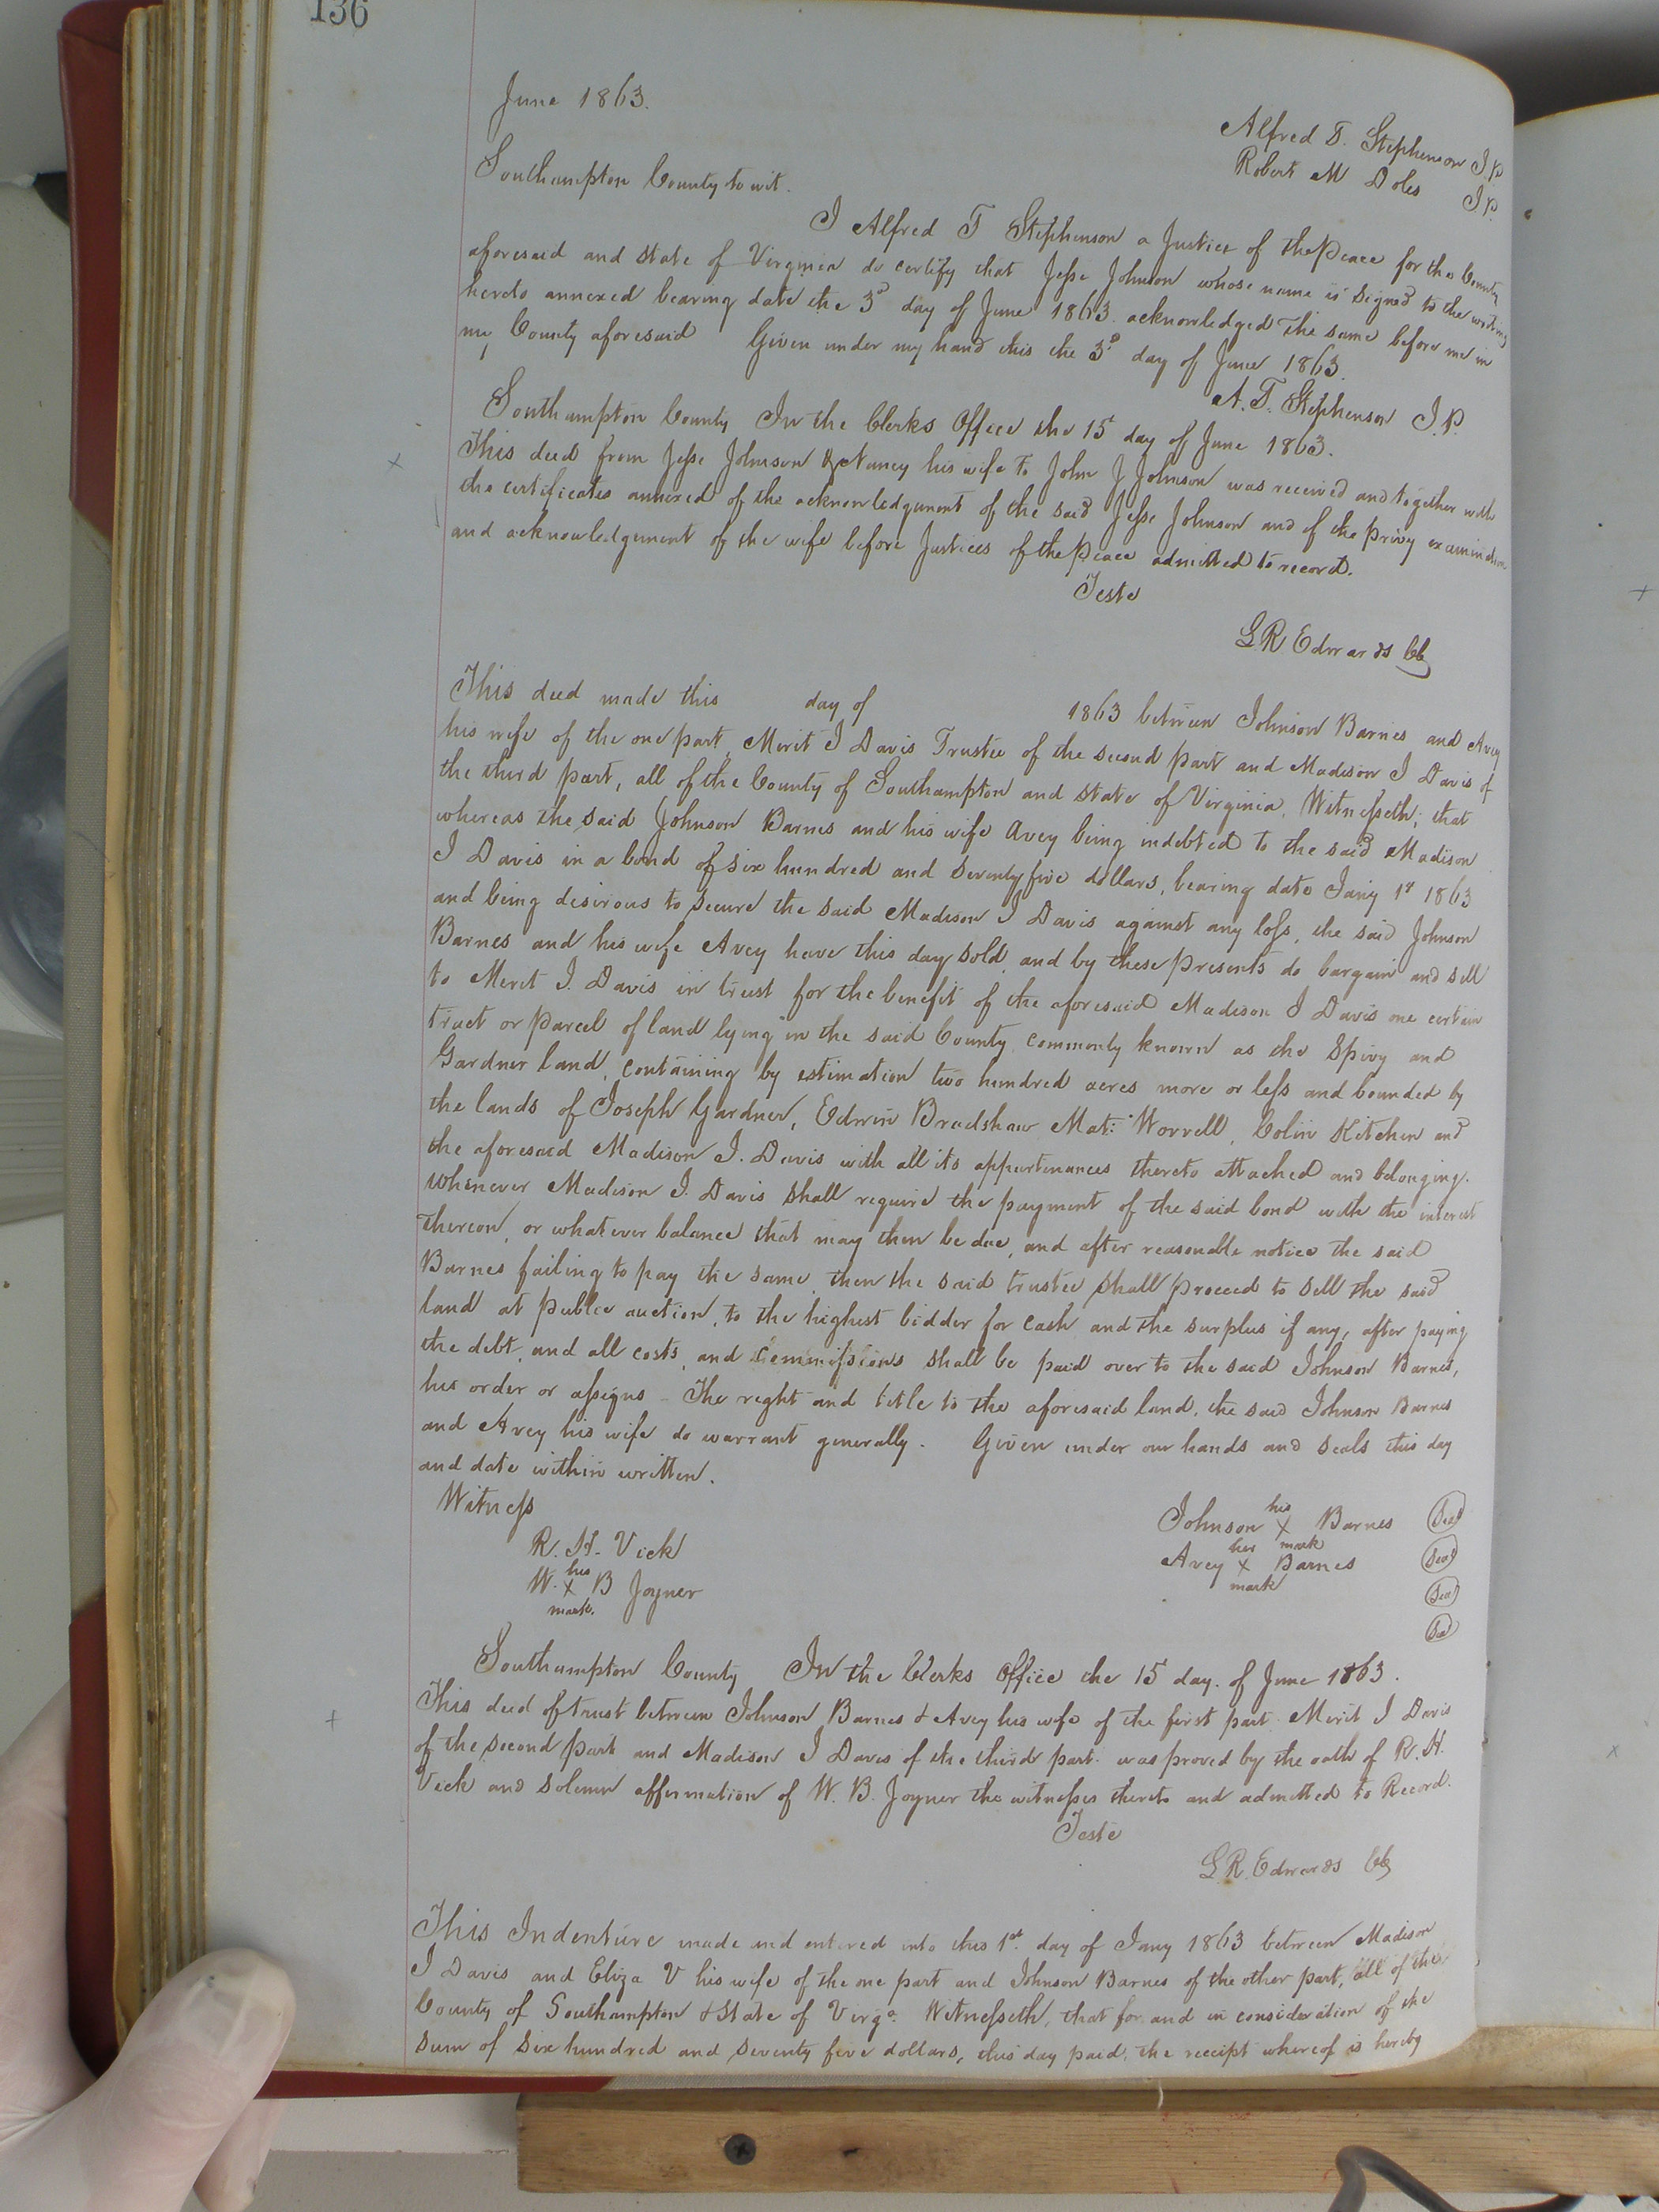 136
June 1863.
Alfred T. Stephenson J.P.
Robert M Doles J.P.
Southampton County to wit.
I Alfred T Stephenson a Justice of the Peace for the County
aforesaid and State of Virginia do certify that Jesse Johnson whose name is signed to the writing
hereto annexed bearing date the 3d day of June 1863. acknowledged the same before me in
my County aforesaid Given under my hand this the 3d day of June 1863.
A. T. Stephenson J.P.
Southampton County In the Clerks Office the 15 day of June 1863.
This deed from Jesse Johnson & Nancy his wife to John J Johnson was received and together with
the certificates annexed of the acknowledgment of the said Jesse Johnson and of the privy examination
and acknowledgement of the wife before Justices of the Peace admitted to record.
Teste
L R Edwards CC
This deed made this day of 1863 between Johnson Barnes and Avey
his wife of the one part, Merit J Davis Trustee of the second part and Madison J Davis of
the third part, all of the County of Southampton and State of Virginia, Witnesseth; that
whereas the said Johnson Barnes and his wife Avey being indebted to the said Madison
J Davis in a bond of six hundred and seventy five dollars, bearing date Jany 1st 1863
and being desirous to secure the said Madison J Davis against any loss, the said Johnson
Barnes and his wife Avey have this day sold and by these presents do bargain and sell
to Merit J. Davis in trust for the benefit of the aforesaid Madison J Davis one certain
tract or parcel of land lying in the said County commonly known as the Spivy and
Gardner land, containing by estimation two hundred acres more or less and bounded by
the lands of Joseph Gardner, Edwin Bradshaw Mat: Worrell, Colin Kitchen and
the aforesaid Madison J. Davis with all its appurtenances thereto attached and belonging.
Whenever Madison J. Davis shall require the payment of the said bond with the interest
thereon, or whatever balance that may then be due, and after reasonable notice the said
Barnes failing to pay the same, then the said trustee shall proceed to sell the said
land at public auction, to the highest bidder for cash and the surplus if any, after paying
the debt, and all costs, and Commissions shall be paid over to the said Johnson Barnes,
his order or assigns – The right and title to the aforesaid land, the said Johnson Barnes
and Avey his wife do warrant generally. Given under our hands and seals this day
and date within written.
Witness
R. H. Vick
W. his x mark. B Joyner
Johnson his x mark Barnes Seal
Avey her x mark Barnes Seal
Seal
Seal
Southampton County In the Clerks Office the 15 day. of June 1863.
This deed of trust between Johnson Barnes & Avey his wife of the first part Merit J Davis
of the second part and Madison J Davis of the third part. was proved by the oath of R. H.
Vick and solemn affirmation of W. B. Joyner the witnesses thereto and admitted to Record.
Teste
L. R. Edwards CC
This Indenture made and entered into this 1st day of Jany 1863 between Madison
J Davis and Eliza V his wife of the one part and Johnson Barnes of the other part, all of the
County of Southampton & State of Virga. Witnesseth, that for and in consideration of the
sum of six hundred and seventy five dollars, this day paid, the receipt whereof is hereby